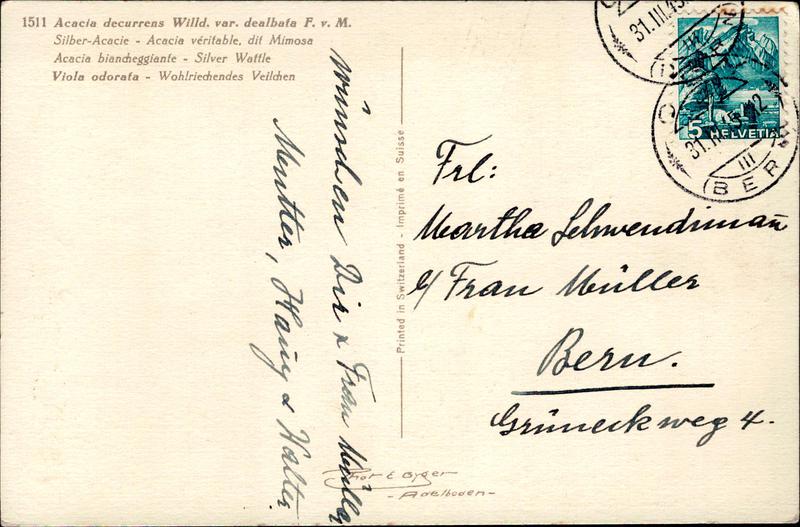 1511 Acacia decurrens Willd. var. dealbata F. v. M.
Silber-Acacie - Acacia véritable, dit Mimosa
Acacia biancheggiante - Silver Wattle
Viola odorata - Wohlriechendes Veilchen
Wünschen Dir & Frau Müller
Mutter, Hans & Walter
Printed in Switzerland - Imprimé en Suisse
Phot E Gyger
- Adelboden -
31.III.45
BERN
5 HELVETIA
31.III.45-12
III
(BER
Frl:
Martha Schwendimañ
c/ Frau Müller
Bern.
Grüneckweg 4.